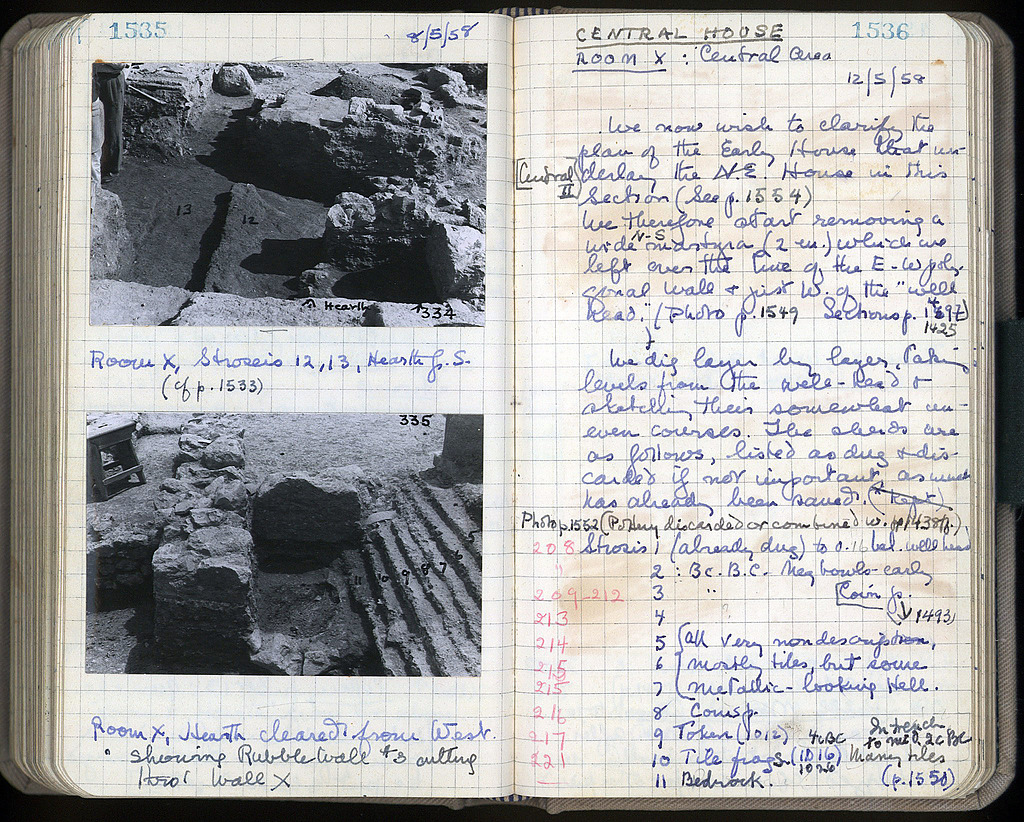 1535
8/5/58
13
12
Hearth
334
Room X, Stroseis 12, 13, Hearth fr. S.
(cf p. 1533)
335
11 10 9 8 7 6 5
Room X, Hearth cleared from West.
" showing Rubble Wall #3 cutting
Wall X
CENTRAL HOUSE
1536
ROOM X : Central area
12/5/58
We now wish to clarify the
plan of the Early House that un-
Central II
derlay the N.E. House in this
Section (See p. 1554)
We therefore start removing a
N-S
wide mastyra (2 m.) which we
left over the line of the E-W poly-
gonal wall + just W. of the "well
head." (Photo p. 1549 Sections p.
1425
We dig layer by layer, taking
levels from the well-head &
sketching their somewhat un-
even courses. The sherds are
as follows, listed as dug & dis-
carded if not important, as much
has already been saved. (* Kept)
Photo p. 1552 (Pottery discarded or combined w. p. 1438
208 Strosis 1 (already dug) to 0.16 bel. well head
" 2 : BC. B.C. Meg bowls - early
209-212 3 " Coin p.
1493
213 4
214 5 all very nondescript,
215 6 mostly tiles, but some
215 7 metallic-looking Hell.
216 8 Coinsp.
217 9 Token (1012) 4c BC
In trench
to mid 2c BC
221 10 Tile frags. (1016) Many tiles
1020
11 Bedrock. (p. 1550)